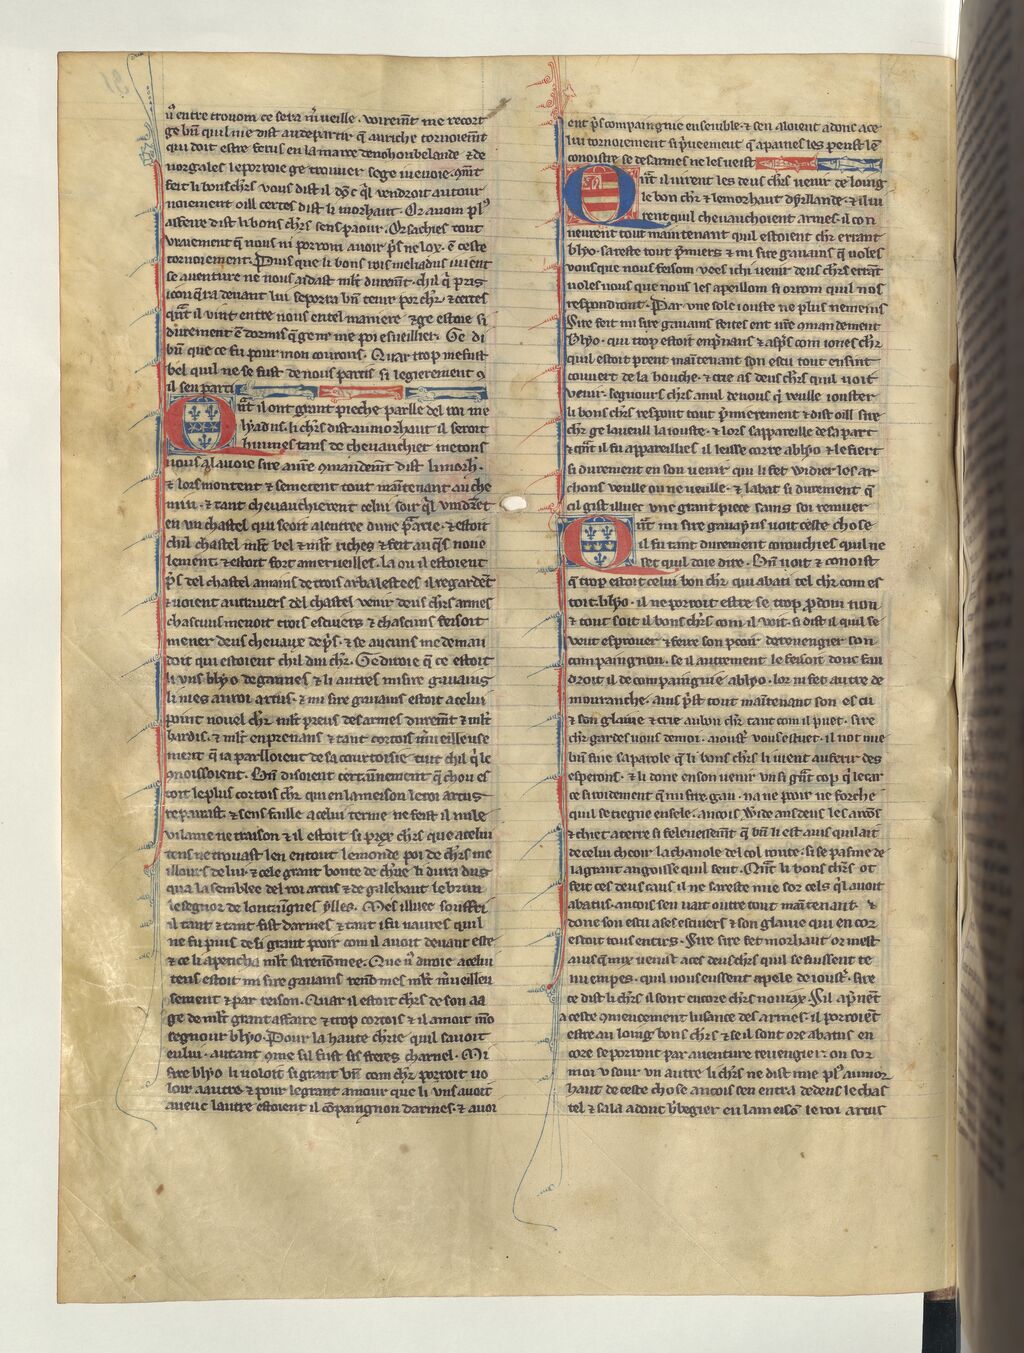 n9 entre trouom ce sera m̃ueille. voirem̃t me recort
ge bñ quil me dist au departir q̃ auriche tornoiem̃t
qui doit estre ferus en la marce denohonbelande ⁊ de
norgales le porroie ge trouuer se ge ni euoie. 9m̃t
feit li bons ch̃rs vous dist il dõc q̃l vendroit au tour
noiement oill certes dist li morhaut. Or auom pl9
affeire dist li bons ch̃rs sens paour. Or sachies tout
vraiement q̃ nous ni porrom auoir p̃s ne lox. ẽ ceste
tornoiement. Puis que li bons rois meliadus iuient
se auenture ne nous aidast ml̃t durem̃t. chil q̃ pris
icon q̃ra deuant lui se porra bñ tenir por ch̃r. ⁊ certes
qñt il vint entre nous en tel maniere ⁊ ge estoie si
durement ẽ dormis q̃ ge nr̃ me poi esueillier. Ge di
bñ que ce fu pour mon courous. Quar trop me fust
bel quil ne se fust de nous partis si legierement 9
il sen parti
Qñt il ont grant pieche parlle del roi me
lyadus. li ch̃rs dist au morhaut il seroit
huimes tans de cheuauchier metons
nous a la uoie sire a uostre 9mandem̃t dist li morh̃.
⁊ lors montent ⁊ se metent tout maĩtenant au che
min. ⁊ tant cheuauchierent celui soir q̃l vindrẽt
en vn chastel qui seoit a lentree dune praerie. ⁊ estoit
chil chastel ml̃t bel ⁊ ml̃t riches ⁊ feit auq̃s noue
lement. ⁊ estoit fort a merueilles. la ou il estoient
p̃s del chastel a mains de trois arbalestees il regardẽt
⁊ uoient au trauers del chastel venir deus ch̃rs armes
chascuns menoit trois escuiers ⁊ chascuns feisoit
mener deus cheuaux de p̃s. ⁊ se aucuns me deman
doit qui estoient chil dui ch̃r. Ge diroie q̃ ce estoit
li vns blyo de gannes ⁊ li autres misire gauains
li nies au roi artus. ⁊ mi sire gauains estoit a celui
point nouel ch̃r. ml̃t preus des armes durem̃t ⁊ ml̃t
hardis. ⁊ ml̃t en prenans ⁊ tant cortois m̃ueilleuse
ment q̃ ia parlloient de sa courtoisie tuit chil q̃ le
9noissoient. Bñ disoient certainnement q̃ chou es
toit le plus cortois ch̃r qui en la meison le roi artus
repairast ⁊ sens faille a celui terme ne fest il nule
vilanie ne traison ⁊ il estoit si preux ch̃rs que a celui
tens ne trouast len en tout le monde poi de ch̃rs me
illours de lui. ⁊ cele grant bonte de ch̃rie li dura dus
qua la semblee del roi artus ⁊ de galehaut le brun
le segnor de lontaingnes ylles. Mes illuec souffri
il tant ⁊ tant fist darmes ⁊ tant i fu naures quil
ne fu puis de si grant pooir com il auoit deuant este
⁊ ce li apeticha ml̃t sa renõmee. Que vos diroie a celui
tens estoit mi sire gauains renõmes ml̃t m̃ueilleu
sement ⁊ par reison. Quar il estoit ch̃rs de son aa
ge de ml̃t grant affaire ⁊ trop cortois ⁊ il amoit mõ
segnour blyo. Pour la haute ch̃rie quil sauoit
en lui. autant 9me sil fust sis freres charnel. Mi
sire blyo li uoloit si grant bñ com ch̃r porroit uo
loir a autre ⁊ pour le grant amour que li vns auoit
auenc lautre estoient il 9paingnon darmes. ⁊ auoi
ent p̃s compaingnie ensemble. ⁊ sen aloient adonc a ce
lui tornoiement si priueement q̃ a paines les peust lẽ
conoistre se de sarmes ne les ueist
Qñt il uirent les deus ch̃rs uenir de loing
le bon ch̃r ⁊ le morhaut dyrllande. ⁊ il ui
rent quil cheuauchoient armes. il con
neurent tout maintenant quil estoient ch̃r errant
blyo. sareste tout p̃miers ⁊ mi sire gauains q̃ uoles
vous que nous feisom vees ichi uenir deus ch̃rs errãt
uoles nous que nous les apeillom si orrom quil nos
respondront. Par vne sole iouste ne plus ne meins
Sire feit mi sire gauains feites ent uostre 9mandement
Blyo. qui trop estoit enp̃nans ⁊ asp̃s com iones ch̃r
quil estoit prent maĩtenant son escu tout ensint
couuert de la houche. ⁊ crie as deus ch̃rs quil uoit
venir. segnours ch̃rs a nul de nous q̃ veulle iouster
li bons ch̃rs respont tout p̃mierement ⁊ dist oill sire
ch̃r ge la ueull la iouste. ⁊ lors sappareille de sa part
⁊ qñt il fu appareillies il leisse corre a blyo ⁊ le fiert
si durement en son uenir qui li fet widier les ar
chons veulle ou ne ueulle. ⁊ labat si durement q̃
cil gist illuec vne grant piece sains soi remuer
Qñt mi sire gauayns uoit ceste chose
il fu tant durement corouchies quil ne
set quil doie dire. Bñ uoit ⁊ conoist
q̃ trop estoit celui bon ch̃r qui abati tel ch̃r com es
toit blyo. il ne porroit estre se trop p̃dom non
⁊ tout soit il bons ch̃rs com il voit. si dist il quil se
veut esprouer ⁊ feire son pooir de reuengier son
compaingnon. se il autrement le feisoit donc fau
droit il de compaingnie a blyo. lor ni fet autre de
mouranche. ains p̃st tout maĩtenant son es cu
⁊ son glaiue ⁊ crie au bon ch̃r tant com il puet. sire
ch̃r gardes uous de moi. a iouster vous estuet. il not mie
bñ fine sa parole q̃ li bons ch̃rs li uient au ferir des
esperons. ⁊ li done en son uenir vn si g̃nt cop q̃ le tar
ce si roidement q̃ mi sire gau. na ne pooir ne forche
quil se tiegne en sele. ancois wide ans deus les arcõs
⁊ chiet a terre si feleuessem̃t q̃ bñ li est auis quil ait
de celui cheoir la chanole del col route. si se pasme de
la grant angoisse quil sent. Qñt li bons ch̃rs ot
feit ces deus caus il ne sareste mie sor cels q̃l auoit
abatus. ancois sen uait outre tout maĩtenant. ⁊
done son escu a ses escuiers ⁊ son glaiue qui en cor
estoit tous entirs. Sire sire fet morhaut or mest
auis q̃ mix uenist a ces deus ch̃rs quil se fuissent te
nu em pes. quil nous eussent apele de iouster. sire
ce dist li ch̃rs il sont encore ch̃rs nouiax. Sil ap̃nẽt
a ceste 9mencement lusance des armes. il porroiẽt
estre au loing bons ch̃rs ⁊ se il sont ore abatus en
core se porront par auenture reuengier. ou sor
moi v sour vn autre. li ch̃rs ne dist mie pl9 au mor
haut de ceste chose ancois sen entra dedens le chas
tel ⁊ sala adont hebegier en la meisõ le roi artus